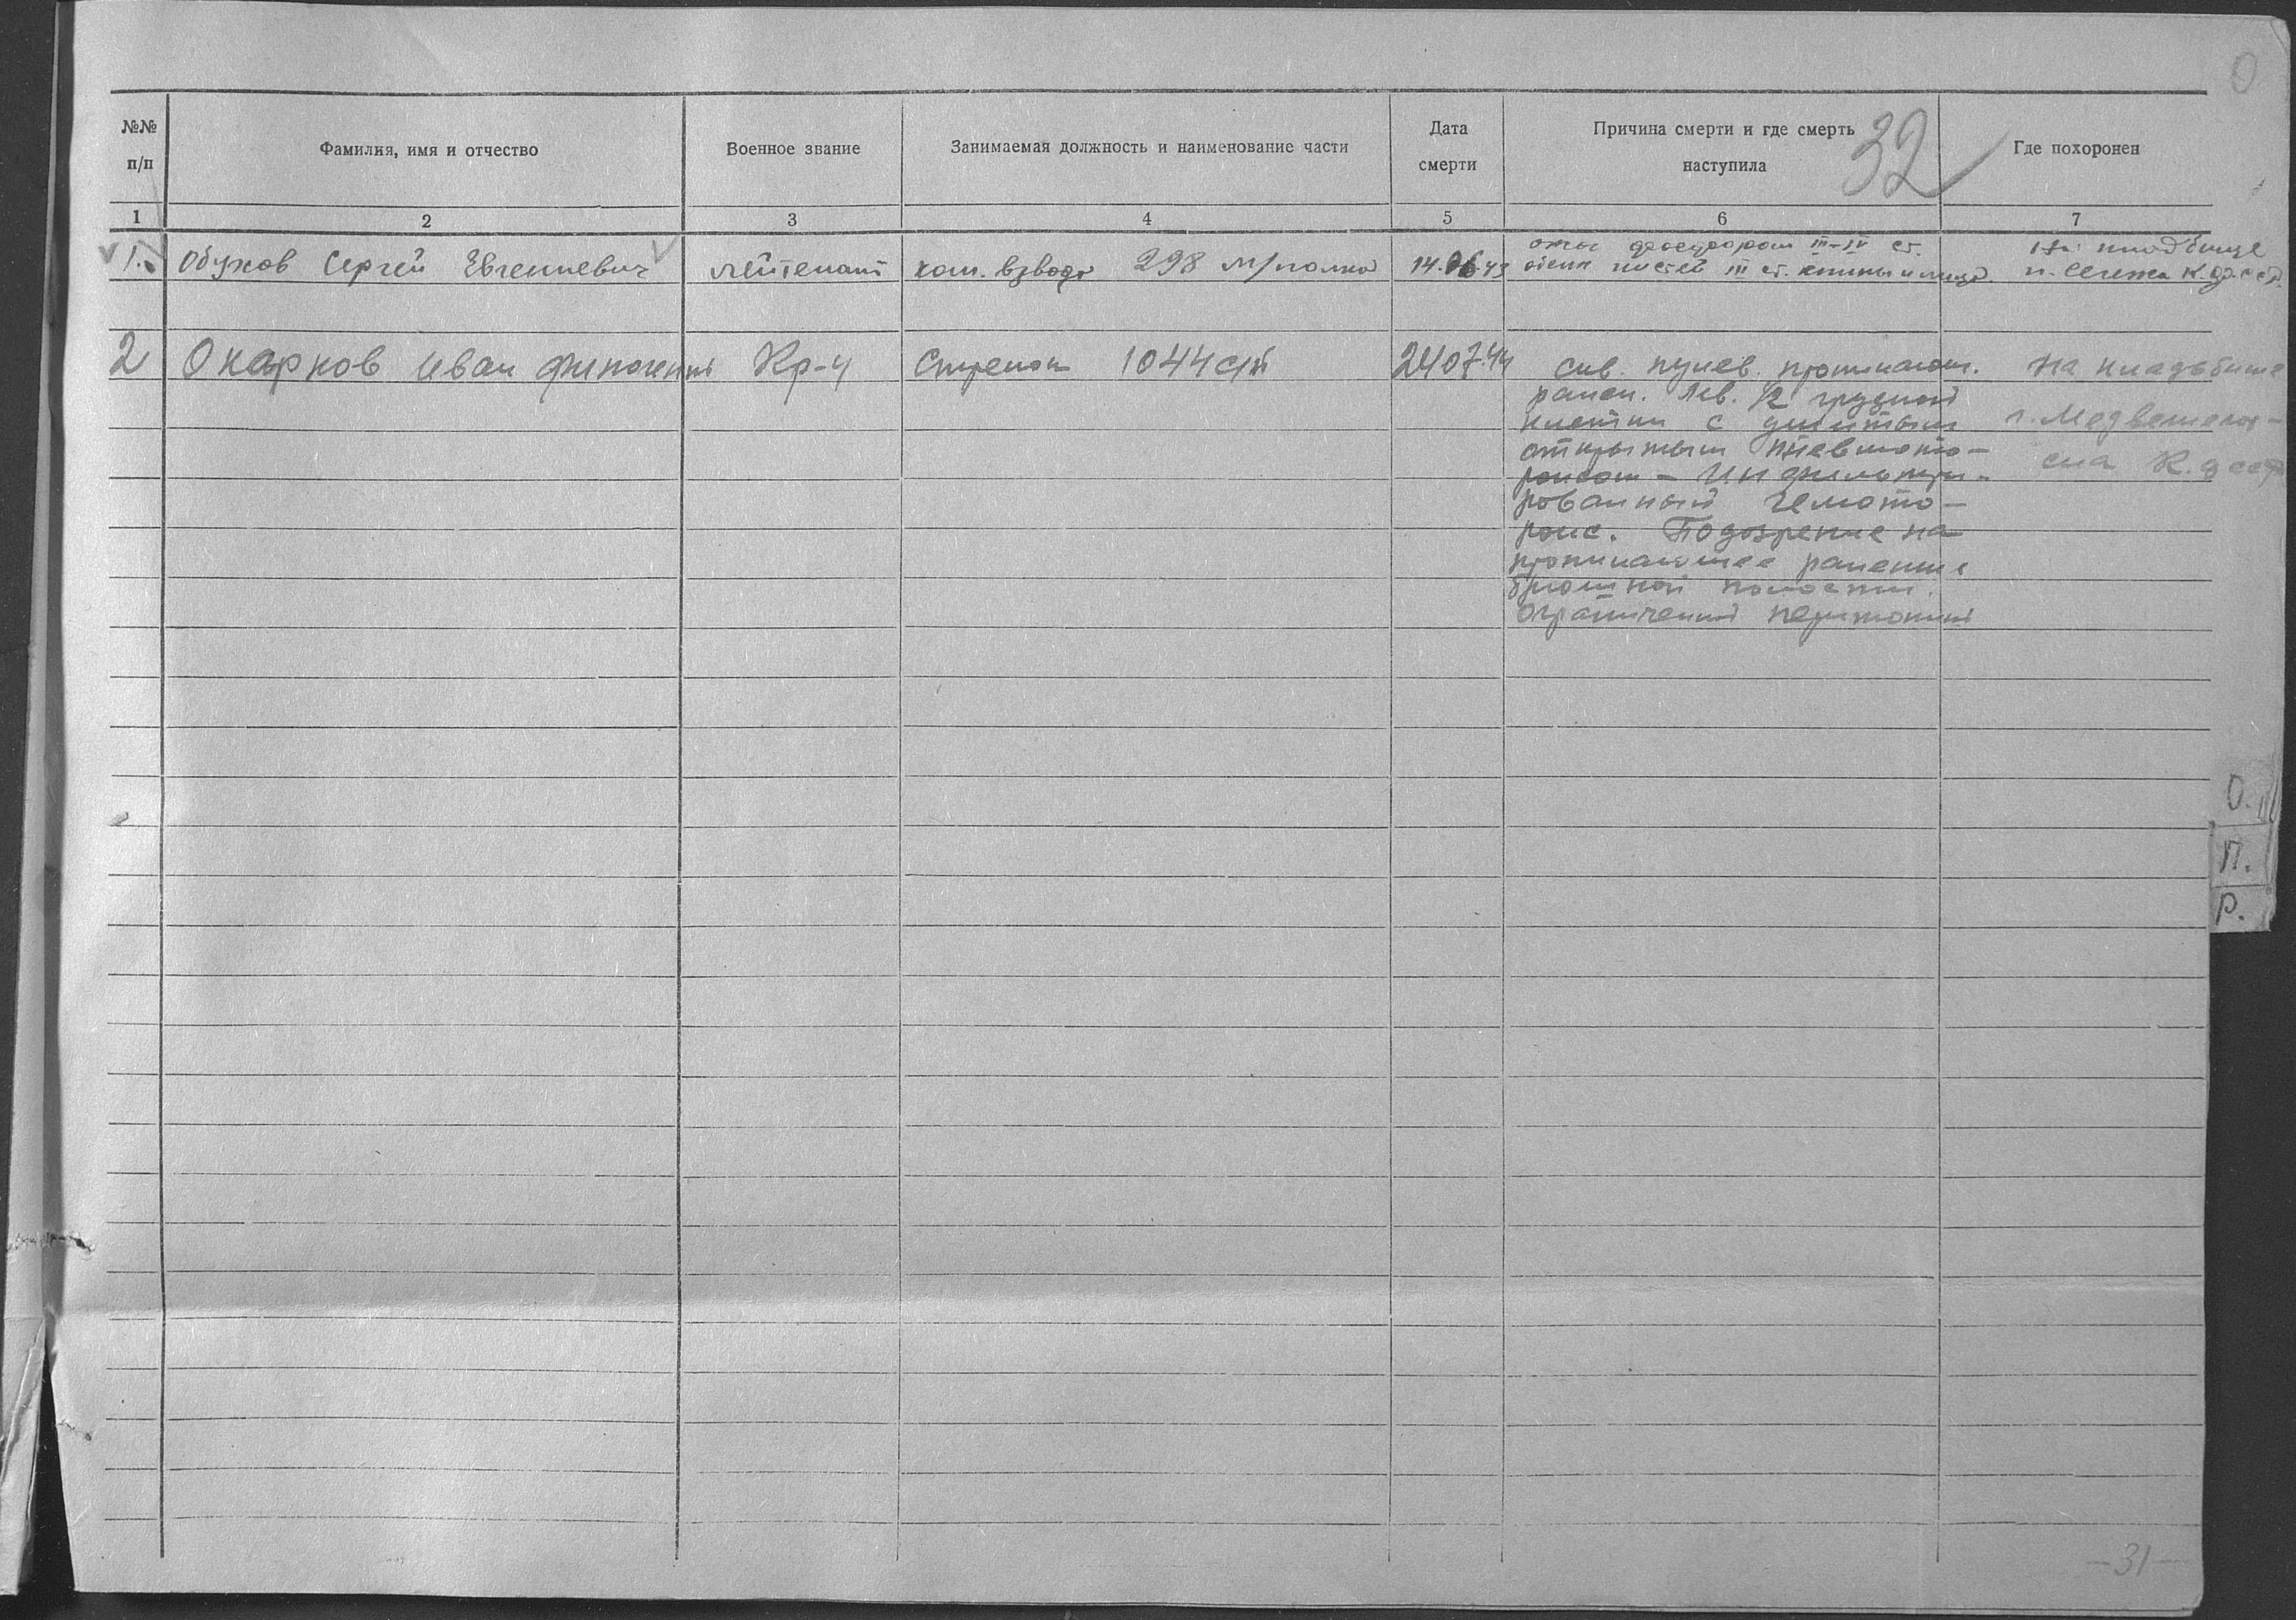 О
32
№№ п/п
Фамилия, имя и отчество
Военное звание
Занимаемая должность и наименование части
Дата смерти
Причина смерти и где смерть наступила
Где похоронен
1 2 3 4 5 6 7
1. Обухов Сергей Евгениевич лейтенант ком. взвода 298 м/полка 14.06.43
ожог фосфором III-IV ст.
обеих кистей III ст. спины и лица.
На кладбище
п. Сегежа К.ф.ССР.
2 Окарков Иван Кр-ц Стрелок 1044 сп 24.07.44
Слв. пулев. проникающ.
ранен. лев. 1/2 грудной
клетки с
открытым пневмото-
раксом - Инфильтри-
рованный гемото-
ракс. Подозрение на
проникающее ранение
брюшной полости.
Ограниченный перитонит
На кладбище
г. Медвежегор-
ска К.ф.ССР
О.
П.
Р.
-31-